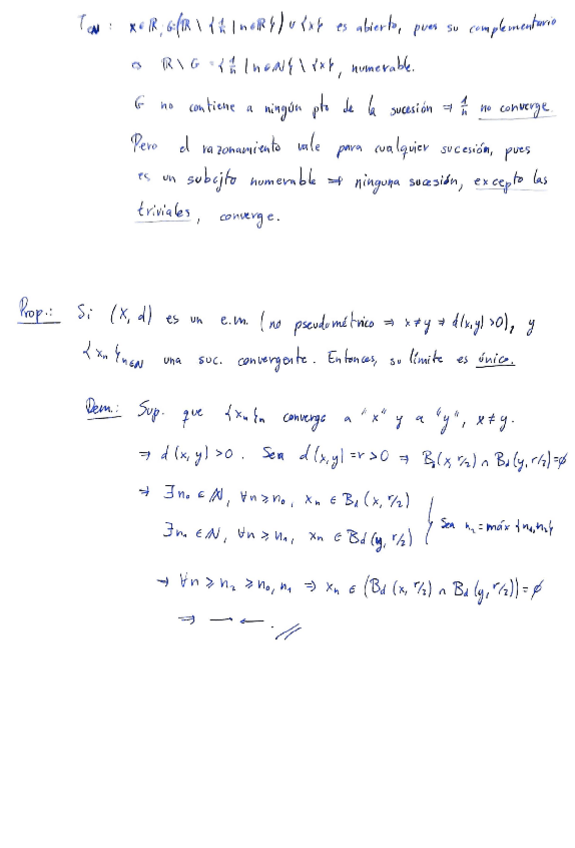 T_CN : x∈ℝ, G=(ℝ \ {1/n | n∈ℝ}) ∪ {x} es abierto, pues su complementario
es ℝ \ G = {1/n | n∈ℕ} \ {x}, numerable.
G no contiene a ningún pto de la sucesión ⇒ 1/n no converge
Pero el razonamiento vale para cualquier sucesión, pues
es un subcjto numerable ⇒ ninguna sucesión, excepto las
triviales, converge.
Prop.: Si (X, d) es un e.m. (no pseudométrico ⇒ x≠y ⇒ d(x,y) >0), y
{x_n}_{n∈ℕ} una suc. convergente. Entonces, su límite es único.
Dem.: Sup. que {x_n}_n converge a "x" y a "y", x≠y.
⇒ d(x,y) >0. Sea d(x,y)=r>0 ⇒ B_d(x, r/2) ∩ B_d(y, r/2)=∅
⇒ ∃n₀ ∈ ℕ, ∀n ≥ n₀, x_n ∈ B_d (x, r/2)
∃n₁ ∈ ℕ, ∀n ≥ n₁, x_n ∈ B_d (y, r/2) } Sea n₂ = máx {n₁,n₂}
→ ∀n ≥ n₂ ≥ n₀, n₁ ⇒ x_n ∈ (B_d (x, r/2) ∩ B_d (y, r/2)) = ∅
⇒ → ←. //